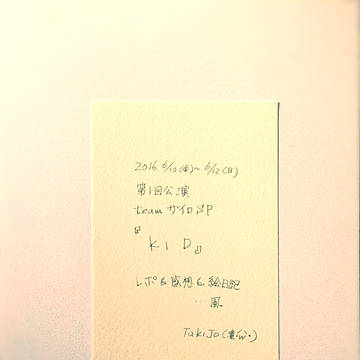 2016 6/10(金)~6/12(日)
第1回公演
team サイロジP
『KID』
レポ&感想&絵日記
…風
TakiJo(・ω・)